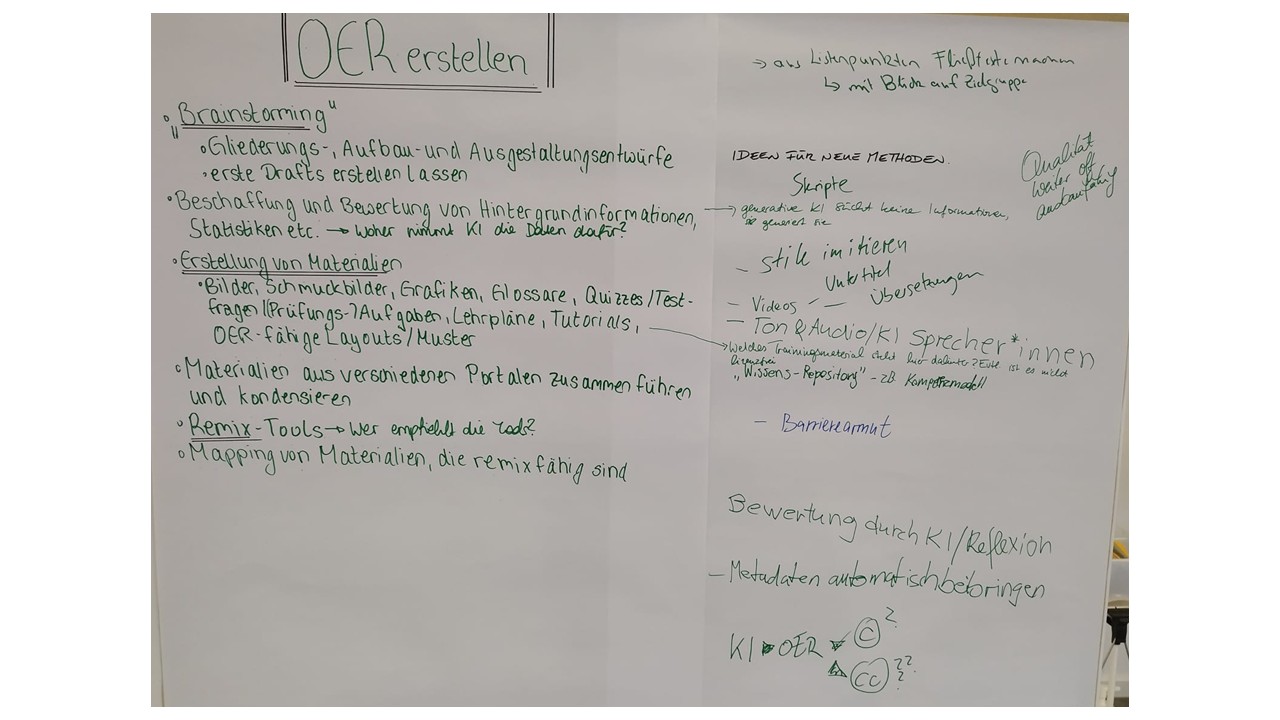 OER erstellen
• "Brainstorming"
• Gliederungs-, Aufbau- und Ausgestaltungsentwürfe
• erste Drafts erstellen lassen
• Beschaffung und Bewertung von Hintergrundinformationen,
Statistiken etc. → Woher nimmt KI die Daten dafür?
• Erstellung von Materialien
• Bilder, Schmuckbilder, Grafiken, Glossare, Quizzes/Test-
fragen/(Prüfungs-)Aufgaben, Lehrpläne, Tutorials,
OER-fähige Layouts/Muster
• Materialien aus verschiedenen Portalen zusammenführen
und kondensieren
• Remix-Tools → Wer empfiehlt die Tools?
• Mapping von Materialien, die remixfähig sind
→ aus Listenpunkten Fließtexte machen
↳ mit Blick auf Zielgruppe
IDEEN FÜR NEUE METHODEN.
Qualität
weiter oft
ausbaufähig
Skripte
→ generative KI sucht keine Informationen,
generiert sie
- Stile imitieren
Untertitel
- Videos - Übersetzungen
- Ton & Audio/KI Sprecher*innen
→ Welches Trainingsmaterial steht hier dahinter? ist es nicht
lizenzfrei
"Wissens-Repository" - zB
- Barrierearmut
Bewertung durch KI/Reflexion
- Metadaten automatisch beibringen
KI OER © ?
CC ???